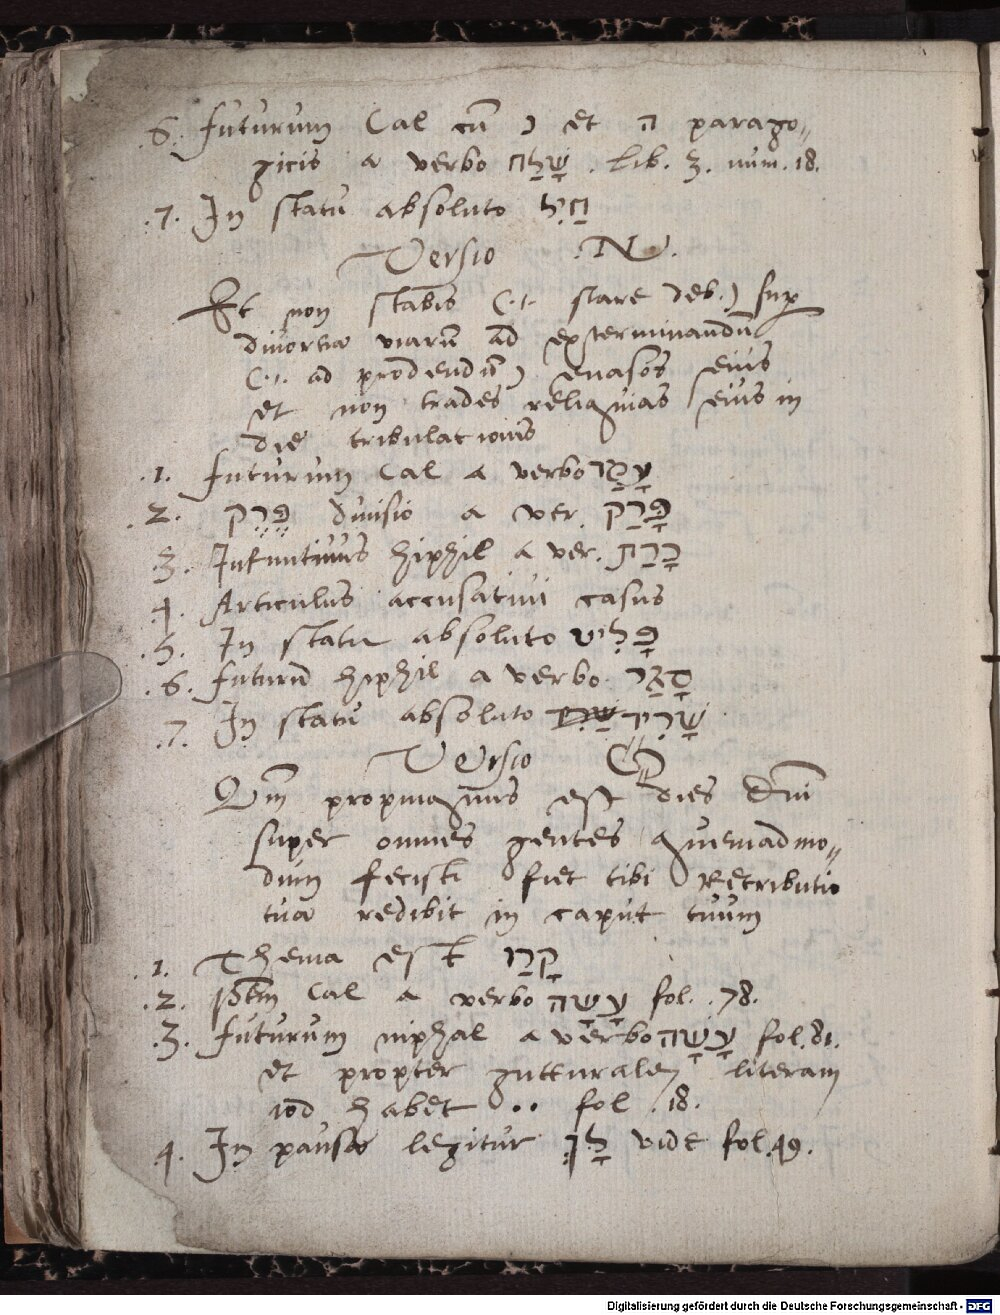 6. Futurum Cal cũ ו et ה parago„
gicis a verbo שָׁלַח. Lib. 3. num. 18.
.7. In statu absoluto חַיִל
Versio .N.
Et non stabis (.i. stare deb.) sup
divortia viarũ ad exterminandũ
(.i. ad prodendũ) evasos eius
et non trades reliquias eius in
die tribulationis
.1. Futurum Cal a verbo עָמַד
.2. פֶּרֶק divisio a ver. פָּרַק
.3. Infinitivus hiphil a ver. כָּרַת
4. Articulus accusativi casus
.5. In statu absoluto פָּלִיט
.6. Futurũ hiphil a verbo סָגַר
.7. In statu absoluto שָׂרִיד
Versio
Qm̃ propinquus est dies Dñi
super omnes gentes quemadmo„
dum fecisti fiet tibi Retributio
tua redibit in caput tuum
.1. Thema est קָרַב
.2. Ptm̃ Cal a verbo עָשָׂה fol. .78.
.3. Futurum niphal a verbo עָשָׂה fol. 81.
et propter gutturalem literam
iod habet .. fol .18.
4. In pausa legitur לָךְ vide fol. 49.
Digitalisierung gefördert durch die Deutsche Forschungsgemeinschaft - DFG